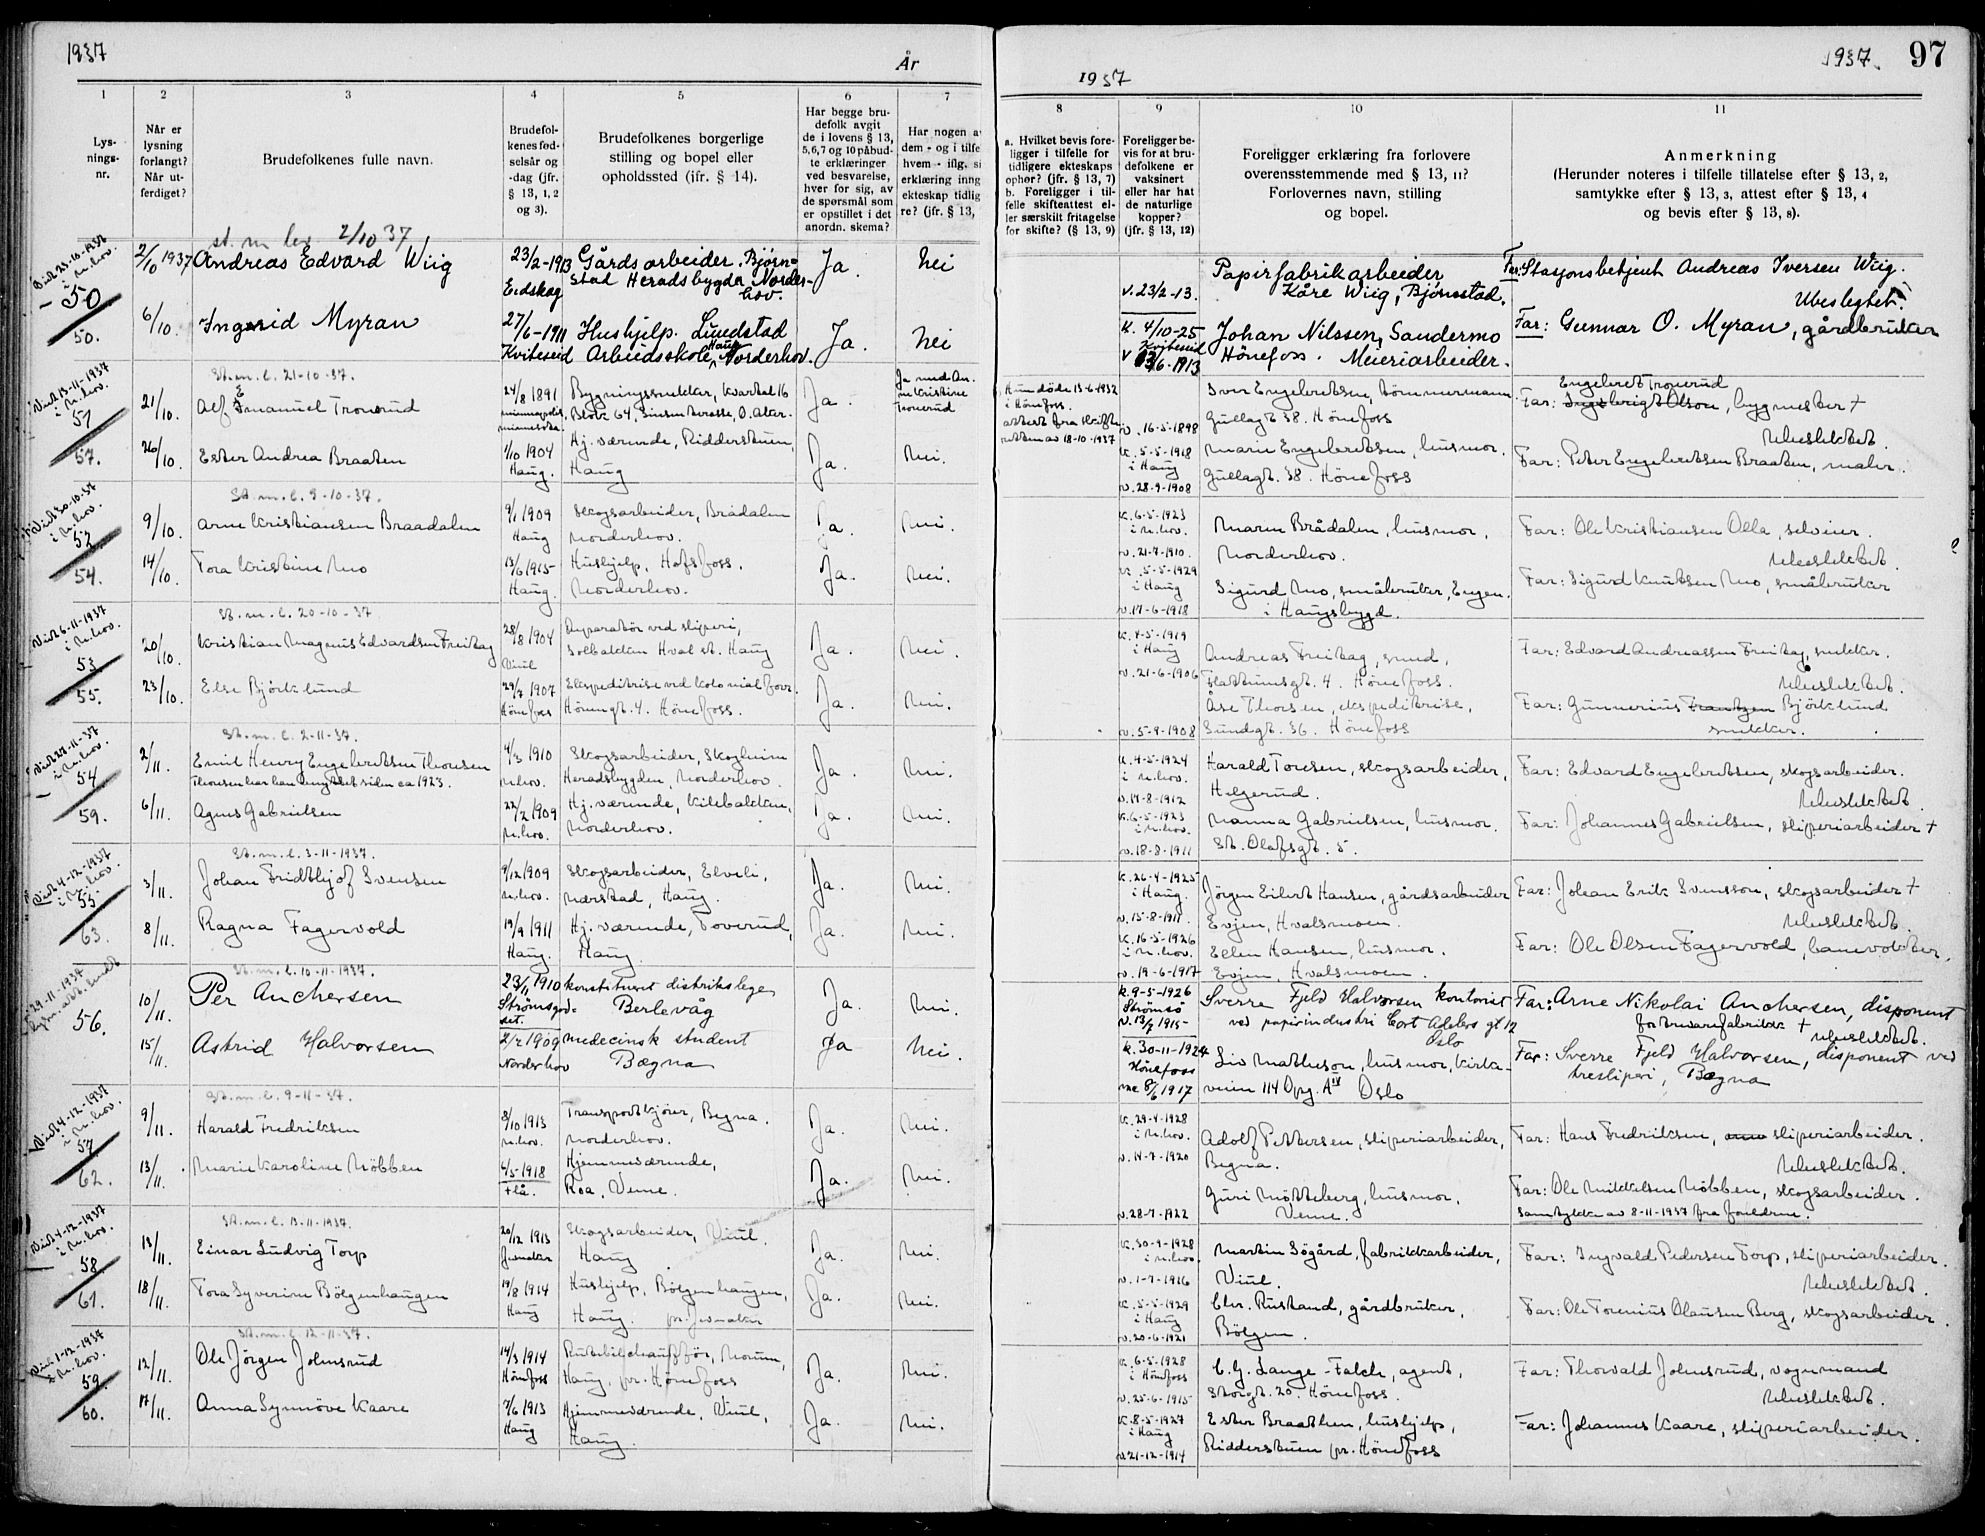 1937
År
1937
1937
97
1
2
3
4
5
6
7
8
9
10
11
Lys-
nings-
nr.
Når er
lysning
forlangt?
Når ut-
ferdiget?
Brudefolkenes fulle navn.
Brudefol-
kenes fød-
selsår og
-dag (jfr.
§ 13, 1, 2
og 3).
Brudefolkenes borgerlige
stilling og bopel eller
opholdssted (jfr. § 14).
Har begge bru-
defolk avgit
de i lovens § 13,
5,6,7 og 10 påbud-
te erklæringer
ved besvarelse,
hver for sig, av
de spørsmål som
er opstillet i det
anordn. skema?
Har nogen a
dem - og i tilfe
hvem - iflg. si
erklæring inng
ekteskap tidlig
re? (jfr. § 13,
a. Hvilket bevis fore-
ligger i tilfelle for
tidligere ekteskaps
ophør? (jfr. § 13, 7)
b. Foreligger i til-
felle skifteattest el-
ler særskilt fritagelse
for skifte? (§ 13, 9)
Foreligger be-
vis for at bru-
defolkene er
vaksinert
eller har hat
de naturlige
kopper?
(jfr. § 13, 12)
Foreligger erklæring fra forlovere
overensstemmende med § 13, 11?
Forlovernes navn, stilling
og bopel.
Anmerkning
(Herunder noteres i tilfelle tillatelse efter § 13, 2,
samtykke efter § 13, 3, attest efter § 13, 4
og bevis efter § 13, 8).
st. m. lev 2/10 37
Viet 23-10-1937
i N.hov.
50
2/10 1937
Andreas Edvard Wiig
23/2-1913
Eidskog
Gårdsarbeider, Bjørn-
stad Heradsbygda Norder-
hov.
Ja.
Nei
v. 23/2-13.
Papirfabrikarbeider
Kåre Wiig, Bjørnstad.
Far: Stasjonsbetjent Andreas Iversen Wiig.
Ubeslegtet.
50.
6/10.
Ingerid Myran
27/6-1911
Kviteseid
Hushjelp. Lundstad
Arbeidsskole, Haug Norderhov.
Ja.
Nei
K. 4/10-25
Kviteseid
v 13/6-1913
Johan Nilssen, Sandermo
Hönefoss. Meieriarbeider.
Far: Gunnar O. Myran, gårdbruker
St. m. l. 21-10-37.
Viet 13-11-1937
i N.hov.
51
21/10.
Alf Emanuel Tronrud
24/8 1891
Minneapolis
Minnesota.
Bygningssnekker, Kvartal 16
Blokk 64, Sinsen terasse, O. Aker.
Ja.
Ja med An-
na Kristine
Tronrud
Hun döde 13-6-1932
i Hönefoss.
attest fra skifte
retten av 18-10-1937
v. 16-5-1898
Iver Engebretsen, tömmermann
Gullagt. 38. Hönefoss
Engebret Tronrud
Far: Ingebrigt Olson, bygmester +
Ubeslektet.
57.
26/10.
Ester Andrea Braaten
1/10 1904
Haug.
Hj. værende, Ridderstuen,
Haug
Ja.
Nei.
K. 5-5-1918
i Haug
v. 28-9-1908
Marie Engebretsen, husmor.
Gullagt. 38. Hönefoss
Far: Peter Engebretsen Braaten, maler.
St. m. l. 9-10-37.
Viet 30-10-37
i N.hov.
52
9/10.
Arne Kristiansen Braadalen
9/1 1909
Haug
Skogsarbeider, Brådalen
Norderhov.
Ja.
Nei.
K. 6-5-1923
i N.hov.
v. 21-7-1910.
Maren Brådalen, husmor,
Norderhov.
Far: Ole Kristiansen Olla, selveier.
Ubeslektet.
54.
14/10.
Tora Kristine Mo
13/6 1915
Haug.
Hushjelp, Hofsfoss,
Norderhov.
Ja.
Nei.
K. 5-5-1929
i Haug
v. 17-6-1918
Sigurd Mo, småbruker, Engen.
i Haugsbygd.
Far: Sigurd Knutsen Mo, småbruker
St. m. l. 20-10-37
Viet 6-11-1937
i N.hov.
53.
20/10.
Kristian Magnus Edvardsen Freitag
28/8 1904
Viul
Reparatör ved sliperi,
Solbakken Hval st. Haug
Ja.
Nei.
K. 4-5-1919
i Haug
v. 21-6-1906
Andreas Freitag, smed,
Flattumsgt. 4. Hönefoss.
Far: Edvard Andreassen Freitag, snekker.
Ubeslektet.
55.
23/10.
Else Björklund
29/7 1907
Hönefoss
Ekspeditrise ved kolonialforr.
Hönengt. 4. Hönefoss.
Ja.
Nei.
v. 5-9-1908
Åse Thorsen, ekspeditrise,
Sundgt. 36. Hönefoss
Far: Gunnerius Frantzen Björklund
snekker.
St. m. l. 2-11-37.
Viet 27-11-37
i N.hov.
54
2/11.
Emil Henry Engebretsen Thoresen
Thoresen har han benyttet siden ca 1923.
4/3 1910
N.hov.
Skogsarbeider, Skogheim
Heradsbygden, Norderhov.
Ja.
Nei.
K. 4-5-1924
i N.hov.
v. 14-8-1912
Harald Toresen, skogsarbeider,
Helgerud.
Far: Edvard Engebretsen, skogsarbeider.
Ubeslektet.
59.
6/11.
Agnes Gabrielsen
22/2 1909
N.hov.
Hj. værende, Kilebakken,
Norderhov.
Ja.
Nei.
K. 6-5-1923
i N.hov.
v. 18-8-1911
Nanna Gabrielsen, husmor.
St. Olafsgt. 5.
Far: Johannes Gabrielsen, sliperiarbeider +
St. m. l. 3-11-1937.
Viet 4-12-1937
i N.hov.
55
3/11.
Johan Fridthjof Svensen
9/12 1909
N.hov.
Skogsarbeider, Elveli,
Nærstad, Haug.
Ja.
Nei.
K. 26-4-1925
i Haug.
v. 15-8-1911.
Jörgen Eilert Hansen, gårdsarbeider
Evjen, Hvalsmoen.
Far: Johan Erik Svensson, skogsarbeider +
Ubeslektet.
63.
8/11.
Ragna Fagervold
19/9 1911
Haug.
Hj. værende, Toverud,
Haug.
Ja.
Nei.
K. 16-5-1926
i N.hov.
v. 19-6-1917
Ellen Hansen, husmor.
Evjen, Hvalsmoen.
Far: Ole Olsen Fagervold, banevokter,
St. m. l. 10-11-1937.
29-11-1937
lysn. att. sendt
56.
10/11.
Per Anchersen
23/11 1910
Strömsgod-
set.
konstituert distrikslege
Berlevåg
Ja.
Nei.
K. 9-5-1926
Strömsö
v. 13/7 1915
Sverre Fjeld Halvorsen kontorist
ved papirindustri Cort Adelers gt 12
Oslo
Far: Arne Nikolai Anchersen, disponent
for trævarefabrikk +
Ubeslektet.
15/11.
Astrid Halvorsen
2/2 1909
Norderhov
medecinsk student
Bægna
Ja
Nei.
K. 30-11-1924
Hönefoss
8/6 1917
Liv Matheson, husmor, Kirke-
veien 114 Opg. A IV Oslo
Far: Sverre Fjeld Halvorsen, disponent ved
tresliperi, Bægna
St. m. l. 9-11-37.
Viet 4-12-1937
i N.hov.
57
9/11.
Harald Fredriksen
8/10 1913
N.hov.
Transportkjörer, Begna.
Norderhov.
Ja.
Nei.
K. 29-4-1928
i N.hov.
v. 14-7-1920
Adolf Pettersen, sliperiarbeider,
Begna.
Far: Hans Fredriksen, sliperiarbeider.
Ubeslektet.
62.
13/11.
Marie Karoline Möbben
6/5 1918
Flå.
Hjemmeværende,
Roa, Veme.
Ja.
Nei.
v. 28-7-1922
Guri Mötteberg, husmor.
Veme.
Far: Ole Mikkelsen Möbben, skogsarbeider.
Samtykke av 8-11-1937 fra foreldrene.
St. m. l. 13-11-1937.
Viet 4-12-1937
i N.hov.
58
13/11.
Einar Ludvig Torp
20/12 1913
Jevnaker
Skogsarbeider, Viul.
Haug
Ja.
Nei.
K. 30-9-1928
i N.hov.
v. 1-7-1916
Martin Sögård, fabrikkarbeider,
Viul.
Far: Ingvald Pedersen Torp, sliperiarbeider.
Ubeslektet.
61.
18/11.
Tora Syverine Bölgenhaugen
19/8 1914
Haug
Hushjelp, Bölgenhaugen,
Haug. pr. Jevnaker
Ja.
Nei.
K. 5-5-1929
i Haug
v. 20-6-1921
Chr. Rustand, gårdbruker,
Bölgen.
Far: Ole Torenius Olausen Berg, skogsarbeider.
St. m. l. 12-11-37.
Viet 1-12-1937
i N.hov.
59.
12/11.
Ole Jörgen Johnsrud
14/3 1914
Hönefoss
Rutebilchauffför, Norum,
Haug, pr. Hönefoss
Ja.
Nei.
K. 6-5-1928
i Hönefoss
v. 25-6-1915
C. G. Lange-Falch, agent,
Storgt. 20. Hönefoss.
Far: Thorvald Johnsrud, vognmand
Ubeslektet.
60.
17/11.
Anna Synnöve Kaare
7/6 1913
Haug
Hjemmeværende, Viul,
Haug.
Ja.
Nei.
K. 8-5-1927
i Haug
v. 21-12-1914
Ester Braathen, hushjelp,
Ridderstuen pr. Hönefoss
Far: Johannes Kaare, sliperiarbeider.